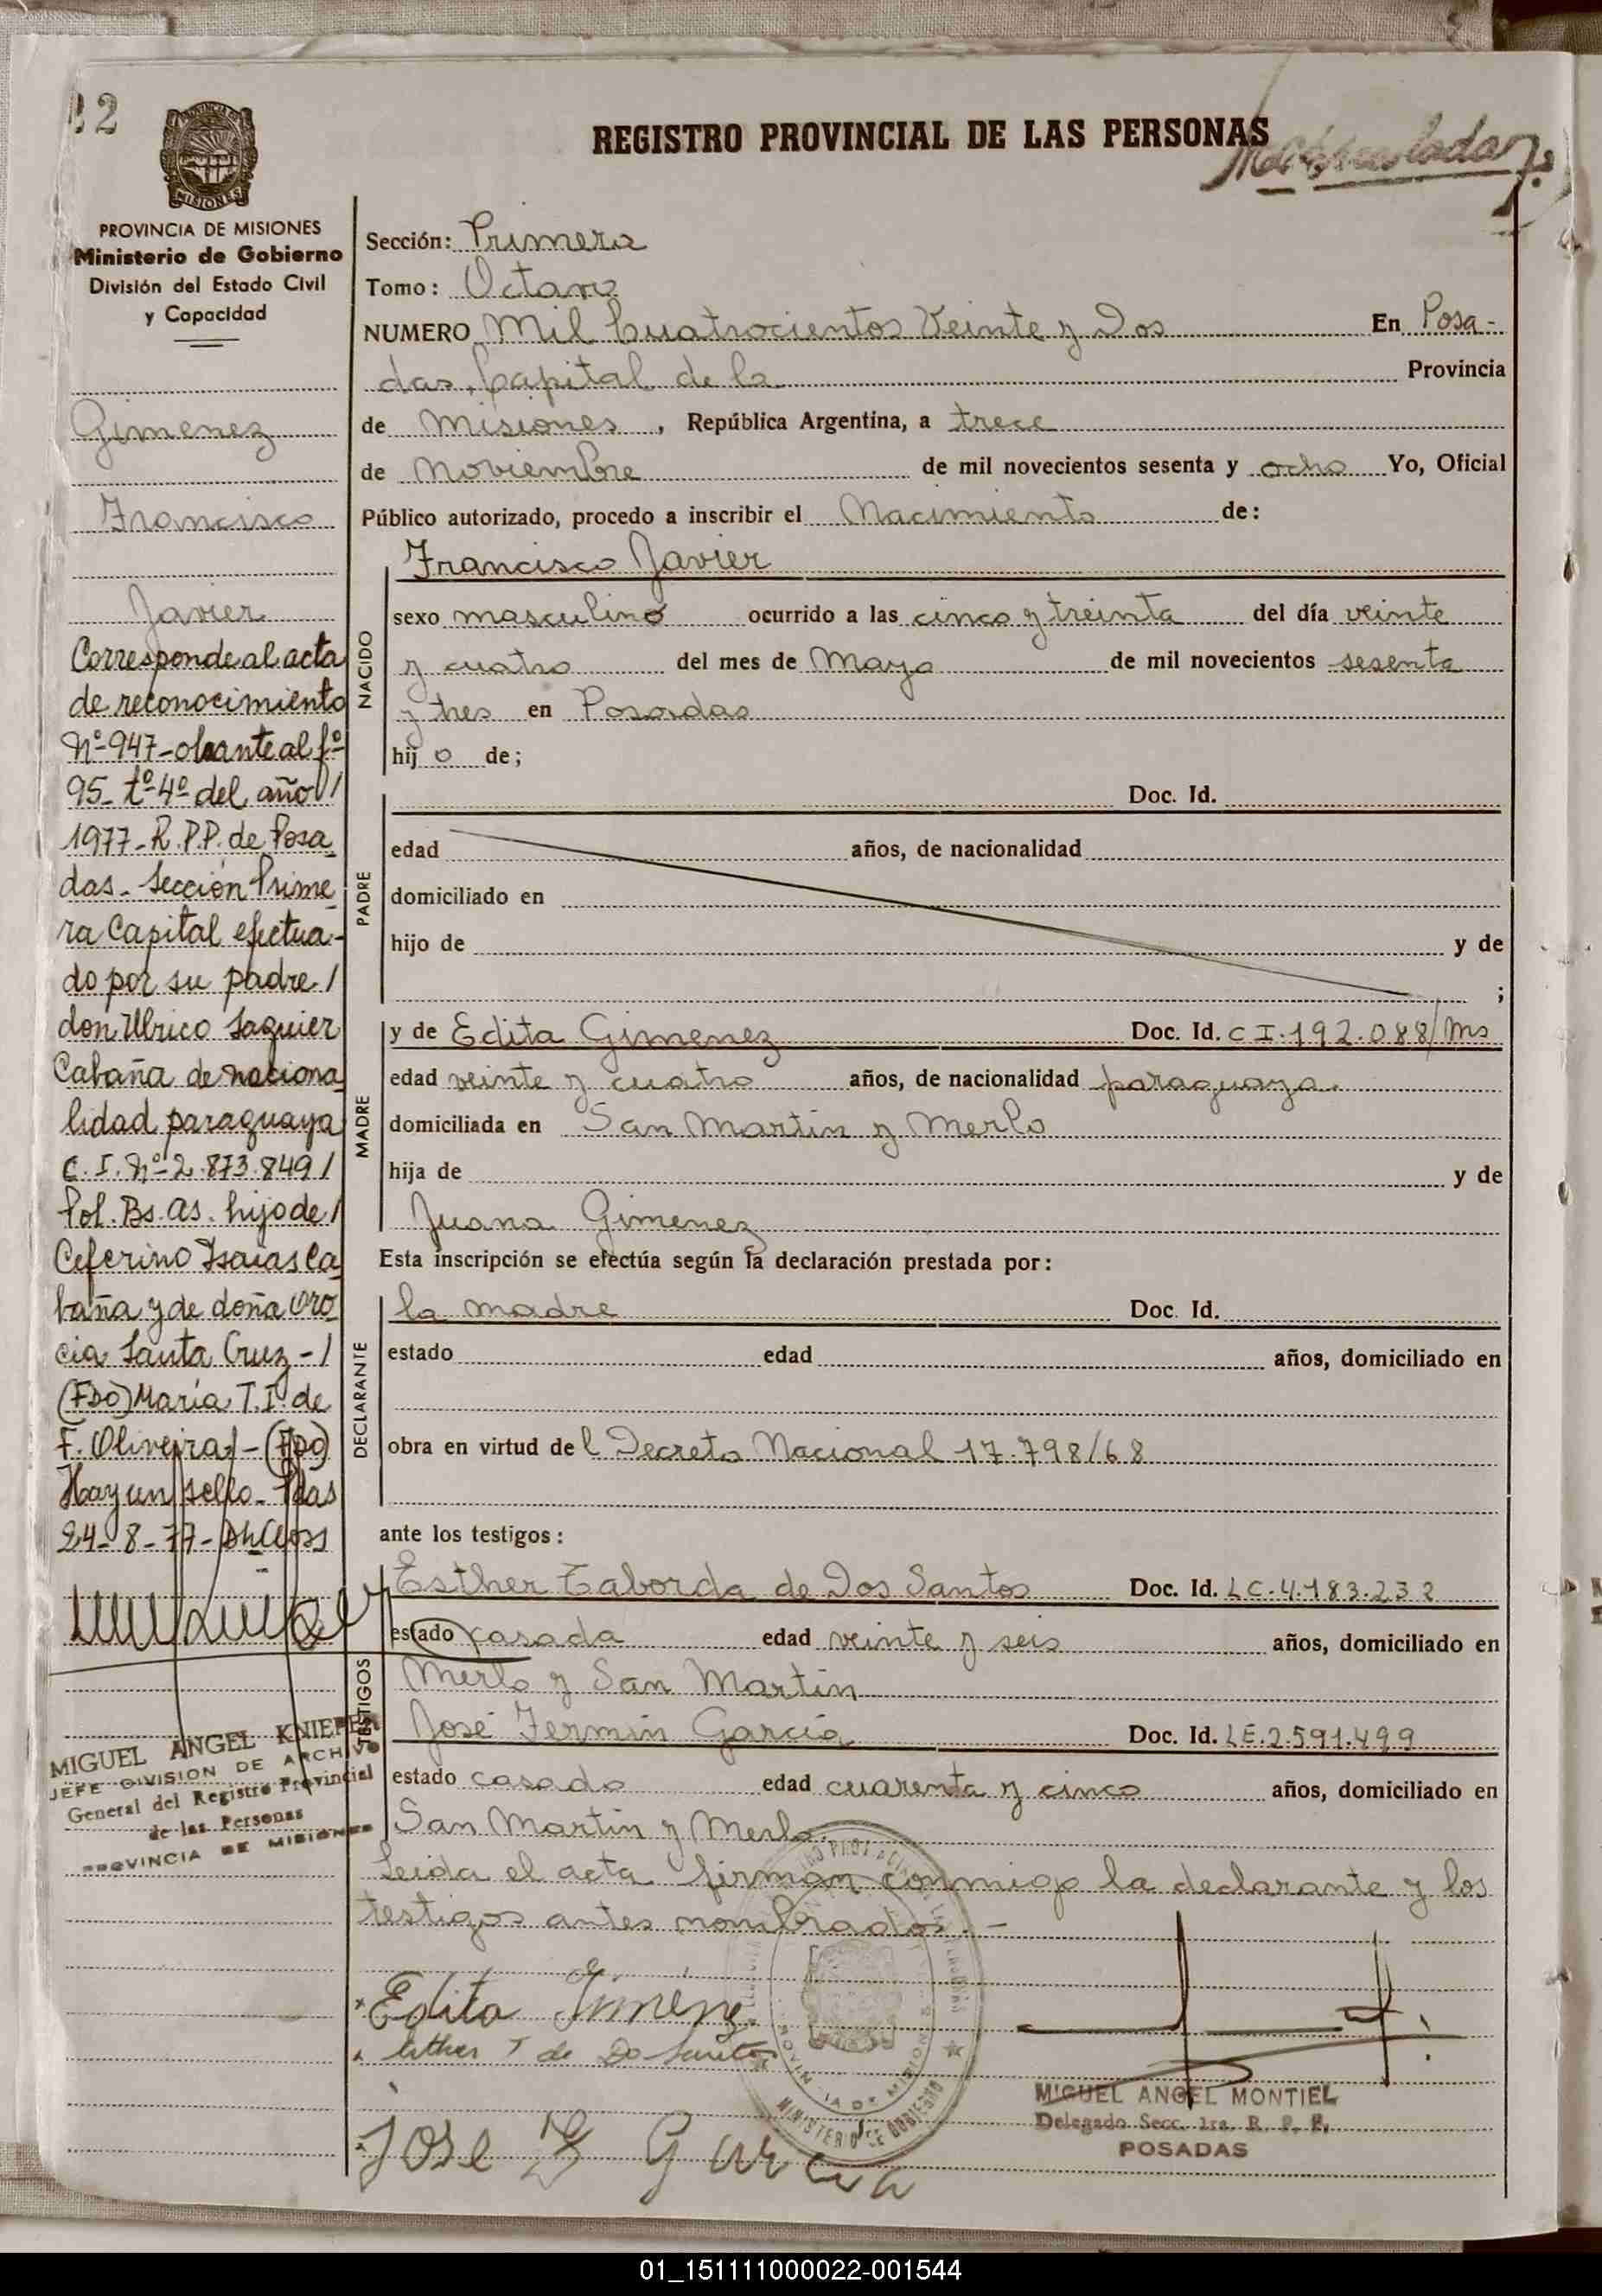 22
REGISTRO PROVINCIAL DE LAS PERSONAS
MISIONES
PROVINCIA DE MISIONES
Ministerio de Gobierno
División del Estado Civil
y Capacidad
Gimenez
Francisco
Javier
Corresponde al acta
de reconocimiento
Nº 947 - obrante al fº
95 - tº 4º del año /
1977 - R.P.P. de Posa
das - Sección Prime
ra Capital efectua-
do por su padre /
don Ulrico Saguier
Cabaña de naciona
lidad paraguaya
C. I. Nº 2.873.849 /
Pol. Bs. As. hijo de /
Ceferino Isaias Ca
baña y de doña Oro
cia Santa Cruz - /
(Fdo) María T. I. de
F. Oliveira - (Fdo)
Hay un sello - Pdas
24 - 8 - 77 -
MIGUEL ANGEL KNIEPER
JEFE DIVISION DE ARCHIVO
General del Registro Provincial
de las Personas
PROVINCIA DE MISIONES
Sección: Primera
Tomo: Octavo
NUMERO Mil Cuatrocientos Veinte y Dos En Posa-
das, Capital de la Provincia
de Misiones, República Argentina, a trece
de Noviembre de mil novecientos sesenta y ocho Yo, Oficial
Público autorizado, procedo a inscribir el Nacimiento de:
NACIDO
Francisco Javier
sexo masculino ocurrido a las cinco y treinta del día veinte
y cuatro del mes de Mayo de mil novecientos sesenta
y tres en Posadas
hij o de;
PADRE
Doc. Id.
edad años, de nacionalidad
domiciliado en
hijo de y de
;
MADRE
y de Edita Gimenez Doc. Id. C I. 192.088/Ms
edad veinte y cuatro años, de nacionalidad paraguaya.
domiciliada en San Martin y Merlo
hija de y de
Juana Gimenez
Esta inscripción se efectúa según la declaración prestada por:
DECLARANTE
la madre Doc. Id.
estado edad años, domiciliado en
obra en virtud de l Decreto Nacional 17.798/68
ante los testigos:
TESTIGOS
Esther Taborda de Dos Santos Doc. Id. LC. 4.183.232
estado casada edad veinte y seis años, domiciliado en
Merlo y San Martin
José Fermin García Doc. Id. LE. 2.591.499
estado casado edad cuarenta y cinco años, domiciliado en
San Martin y Merlo.
Leida el acta firman conmigo la declarante y los
testigos antes nombrados. -
Edita Jimenez
Esther T de Do Santos
Jose F Garcia
MINISTERIO DE GOBIERNO
MIGUEL ANGEL MONTIEL
Delegado Secc. 1ra. R. P. P.
POSADAS
01_151111000022-001544